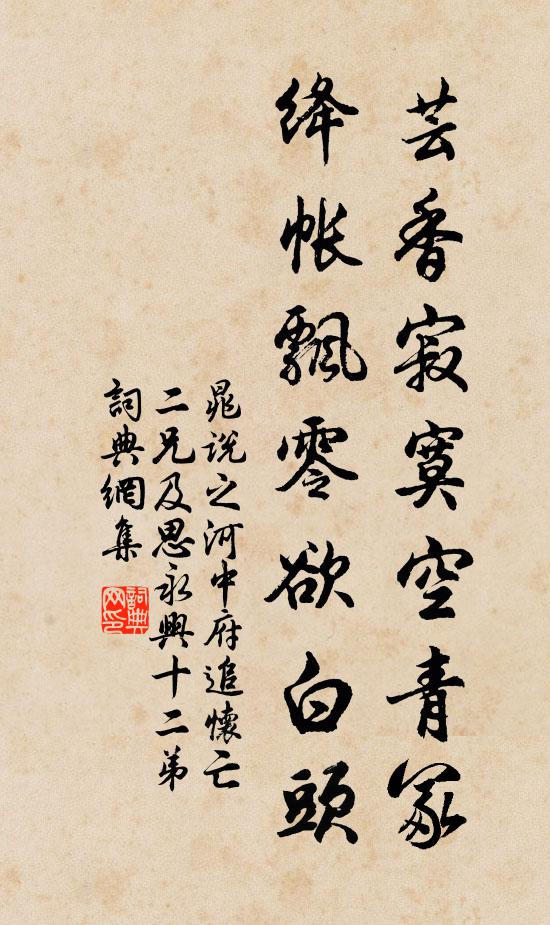 芸香寂寞空青冢
絳帳飄零欲白頭
晁説之河中府追懷亡
二兄及思永興十二弟
詞典網集
詞典
网印